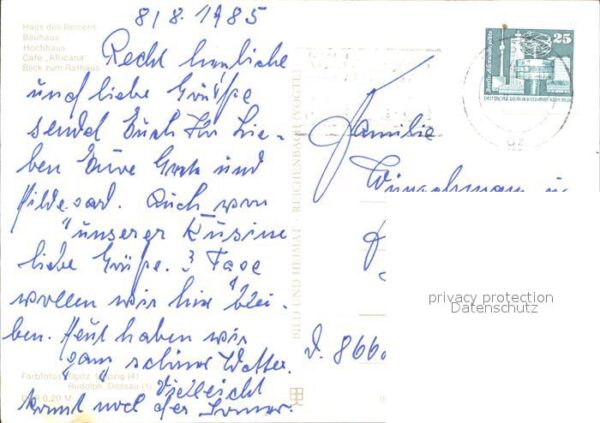 8/8. 1985
Haus des Reisens
Bauhaus
Hochhaus
Café „Africana"
Blick zum Rathaus
Recht herzliche
und liebe Grüße
sendet Euch Ihr Lie-
ben Eure Grete und
Hildegard. Auch von
unserer Kusine
liebe Grüße. 3 Tage
wollen wir hier blei-
ben. Heut haben wir
ganz schönes Wetter.
Vielleicht
kommt noch der Sommer.
Farbfotos: Opitz, Leipzig (4)
Rudolph, Dessau (1)
0,20 M
BILD UND HEIMAT REICHENBACH (VOGTL)
25
Familie
D. 866
privacy protection
Datenschutz